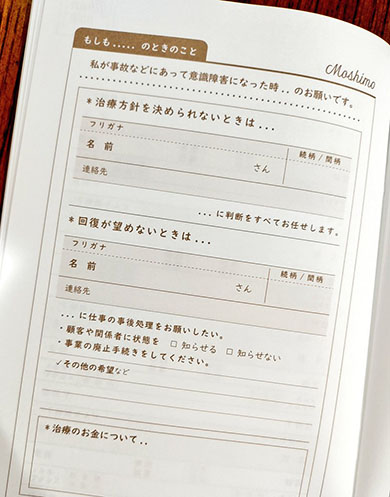 もしも..... のときのこと
Moshimo
私が事故などにあって意識障害になった時.. のお願いです。
*治療方針を決められないときは...
フリガナ
続柄/間柄
名 前
さん
連絡先
...に判断をすべてお任せします。
*回復が望めないときは...
フリガナ
続柄/間柄
名 前
さん
連絡先
...に仕事の事後処理をお願いしたい。
・顧客や関係者に状態を □ 知らせる □ 知らせない
・事業の廃止手続きをしてください。
✓その他の希望など
*治療のお金について..